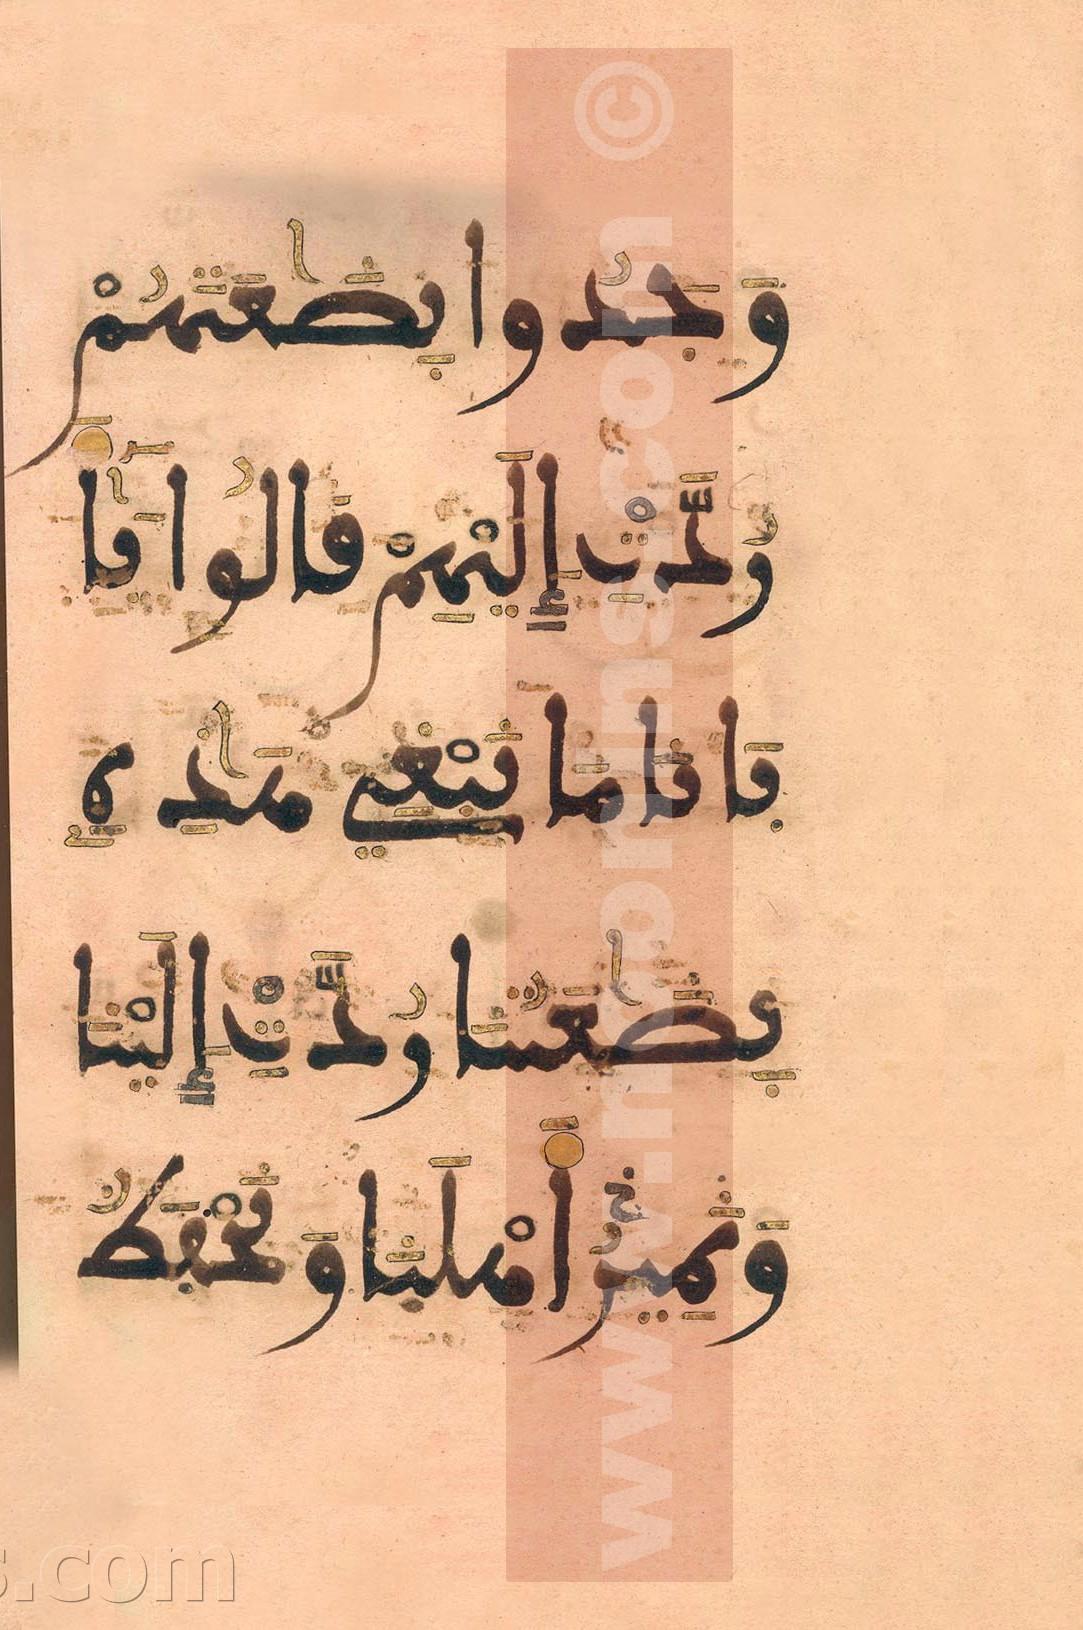 وَجَدُوا بِضَٰعَتَهُمْ
رُدَّتْ إِلَيْهِمْ قَالُوا يَٰٓأَ
بَانَا مَا نَبْغِي هَٰذِهِ
بِضَٰعَتُنَا رُدَّتْ إِلَيْنَا
وَنَمِيرُ أَهْلَنَا وَنَحْفَظُ
s.com